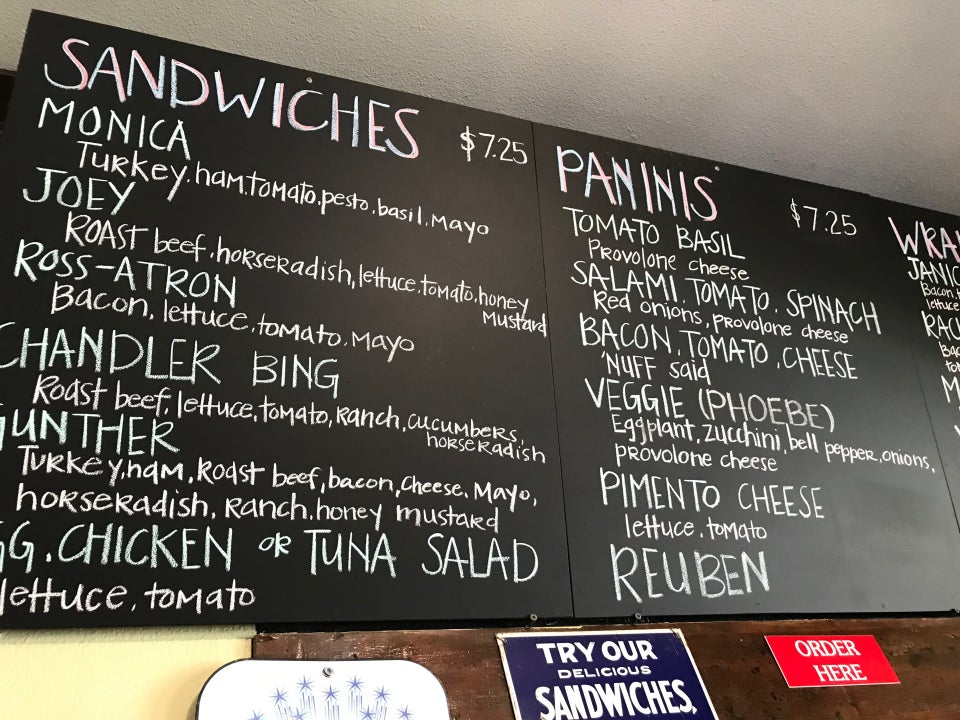 SANDWICHES $7.25
MONICA
Turkey, ham, tomato, pesto, basil, mayo
JOEY
Roast beef, horseradish, lettuce, tomato, honey
mustard
ROSS-ATRON
Bacon, lettuce, tomato, mayo
CHANDLER BING
Roast beef, lettuce, tomato, ranch, cucumbers,
horseradish
GUNTHER
Turkey, ham, roast beef, bacon, cheese, mayo,
horseradish, ranch, honey mustard
GG, CHICKEN OR TUNA SALAD
lettuce, tomato
PANINIS $7.25
TOMATO BASIL
Provolone cheese
SALAMI, TOMATO, SPINACH
Red onions, provolone cheese
BACON, TOMATO, CHEESE
'NUFF said
VEGGIE (PHOEBE)
Eggplant, zucchini, bell pepper, onions,
provolone cheese
PIMENTO CHEESE
lettuce, tomato
REUBEN
WRA
JANIC
Bacon,
lettuce
RAC
Bac
TRY OUR
DELICIOUS
SANDWICHES,
ORDER
HERE